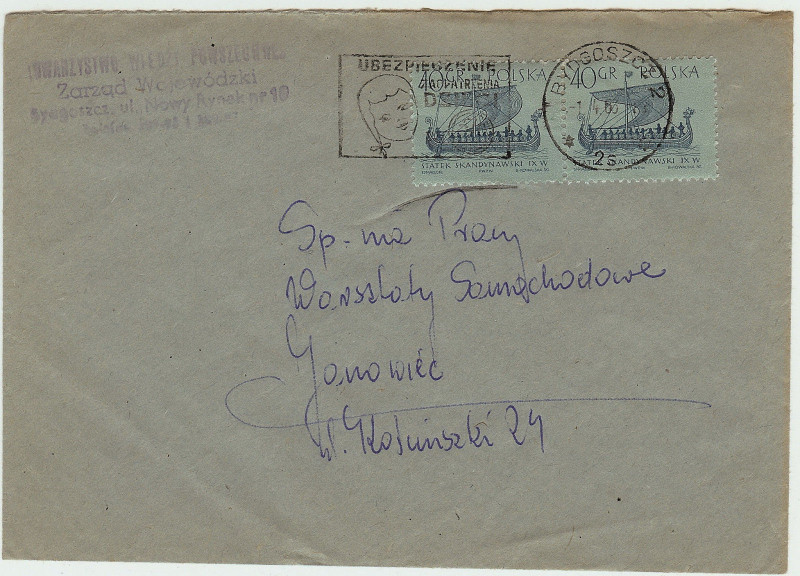 TOWARZYSTWO WIEDZY POWSZECHNEJ
Zarząd Wojewódzki
Bydgoszcz, ul. Nowy Rynek nr 10
UBEZPIECZENIE
ZAOPATRZENIA
BYDGOSZCZ 2
2s
40GR POLSKA
STATEK SKANDYNAWSKI IX W
40GR POLSKA
STATEK SKANDYNAWSKI IX W
Sp-nia Pracy
Warsztaty Samochodowe
Janowiec
ul. Kościuszki 24